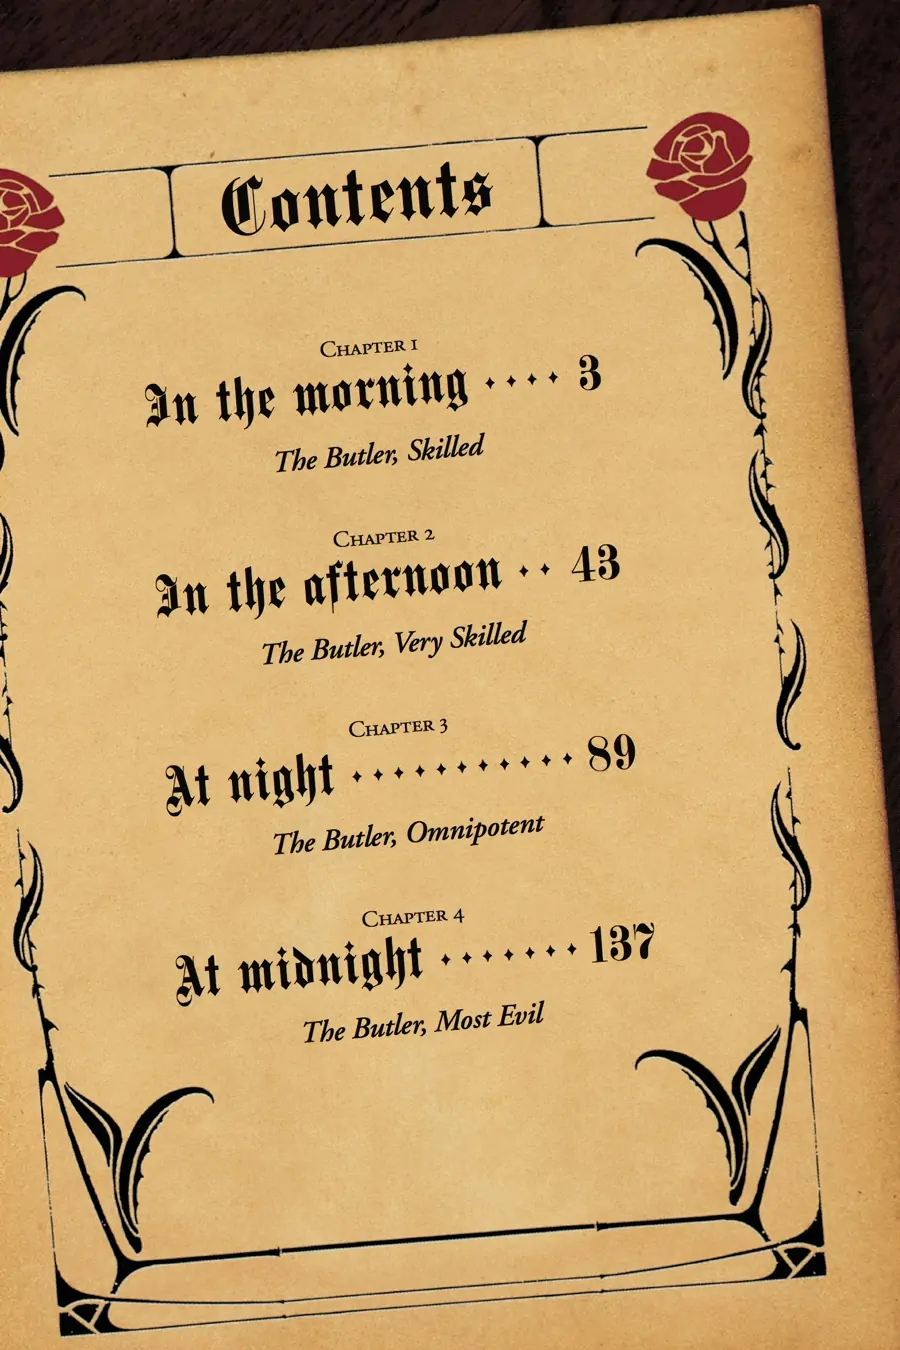 Contents
Chapter 1
In the morning ···· 3
The Butler, Skilled
Chapter 2
In the afternoon ·· 43
The Butler, Very Skilled
Chapter 3
At night ··········· 89
The Butler, Omnipotent
Chapter 4
At midnight ······· 137
The Butler, Most Evil